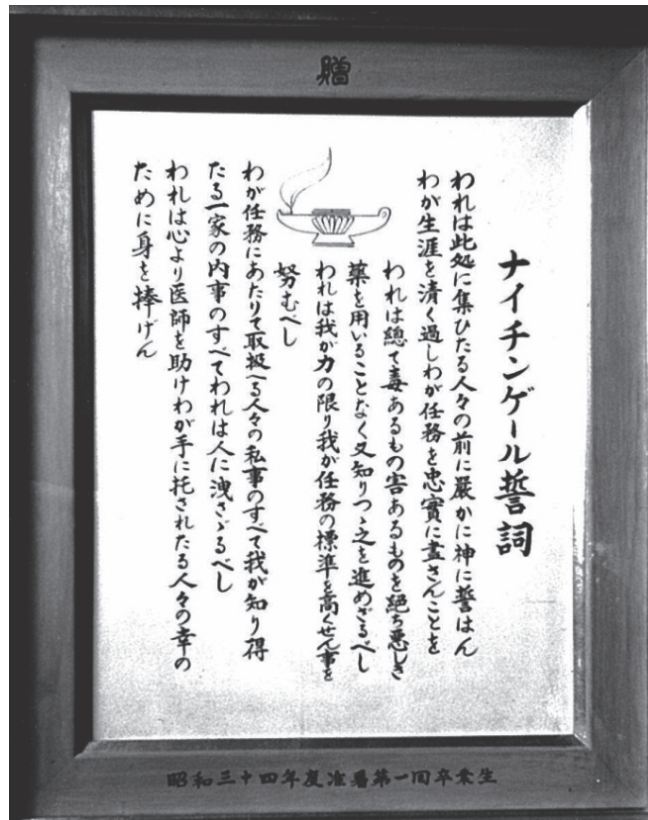 贈
ナイチンゲール誓詞
われは此処に集ひたる人々の前に厳かに神に誓はん
わが生涯を清く過しわが任務を忠實に盡さんことを
われは總て毒あるもの害あるものを絶ち悪しき
薬を用いることなく又知りつゝ之を進めざるべし
われは我が力の限り我が任務の標準を高くせん事を
努むべし
わが任務にあたりて取扱へる人々の私事のすべて我が知り得
たる一家の内事のすべてわれは人に洩さゞるべし
われは心より医師を助けわが手に托されたる人々の幸の
ために身を捧げん
昭和三十四年度准看第一回卒業生